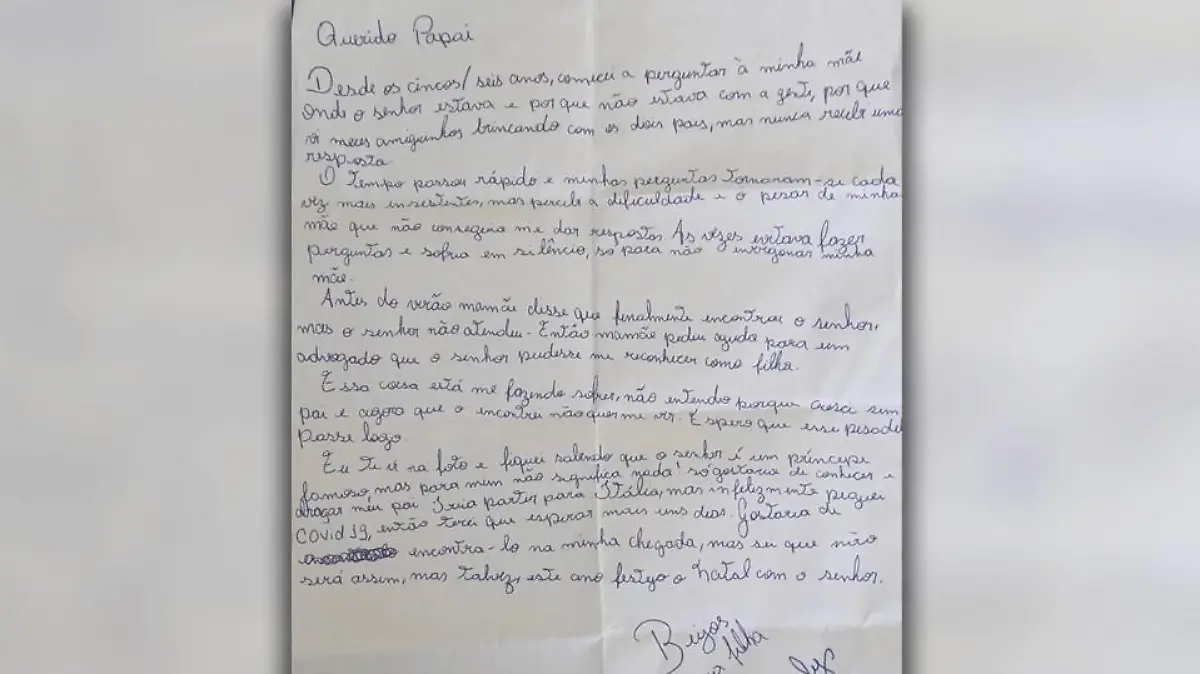 Querido Papai
Desde os cincos/seis anos, comecei a perguntar à minha mãe
onde o senhor estava e por que não estava com a gente, por que
vi meus amiguinhos brincando com os dois pais, mas nunca recebi uma
resposta.
O tempo passou rápido e minhas perguntas tornaram-se cada
vez mais insistentes, mas percebi a dificuldade e o pesar de minha
mãe que não conseguia me dar respostas. As vezes evitava fazer
perguntas e sofria em silêncio, só para não envergonar minha
mãe.
Antes do verão mamãe disse que finalmente encontrou o senhor,
mas o senhor não atendeu. Então mamãe pediu ajuda para um
advogado que o senhor pudesse me reconhecer como filha.
Essa coisa está me fazendo sofrer, não entendo porque cresci sem
pai e agora que o encontrei não quer me ver. Espero que esse pesadelo
passe logo.
Eu te vi na foto e fiquei sabendo que o senhor é um príncipe
famoso, mas para mim não significa nada! só gostaria de conhecer e
abraçar meu pai. Iria partir para Itália, mas infelizmente peguei
COVID 19, então terei que esperar mais uns dias. Gostaria de
encontra-lo na minha chegada, mas sei que não
será assim, mas talvez, este ano festejo o Natal com o senhor.
Beijos
filha